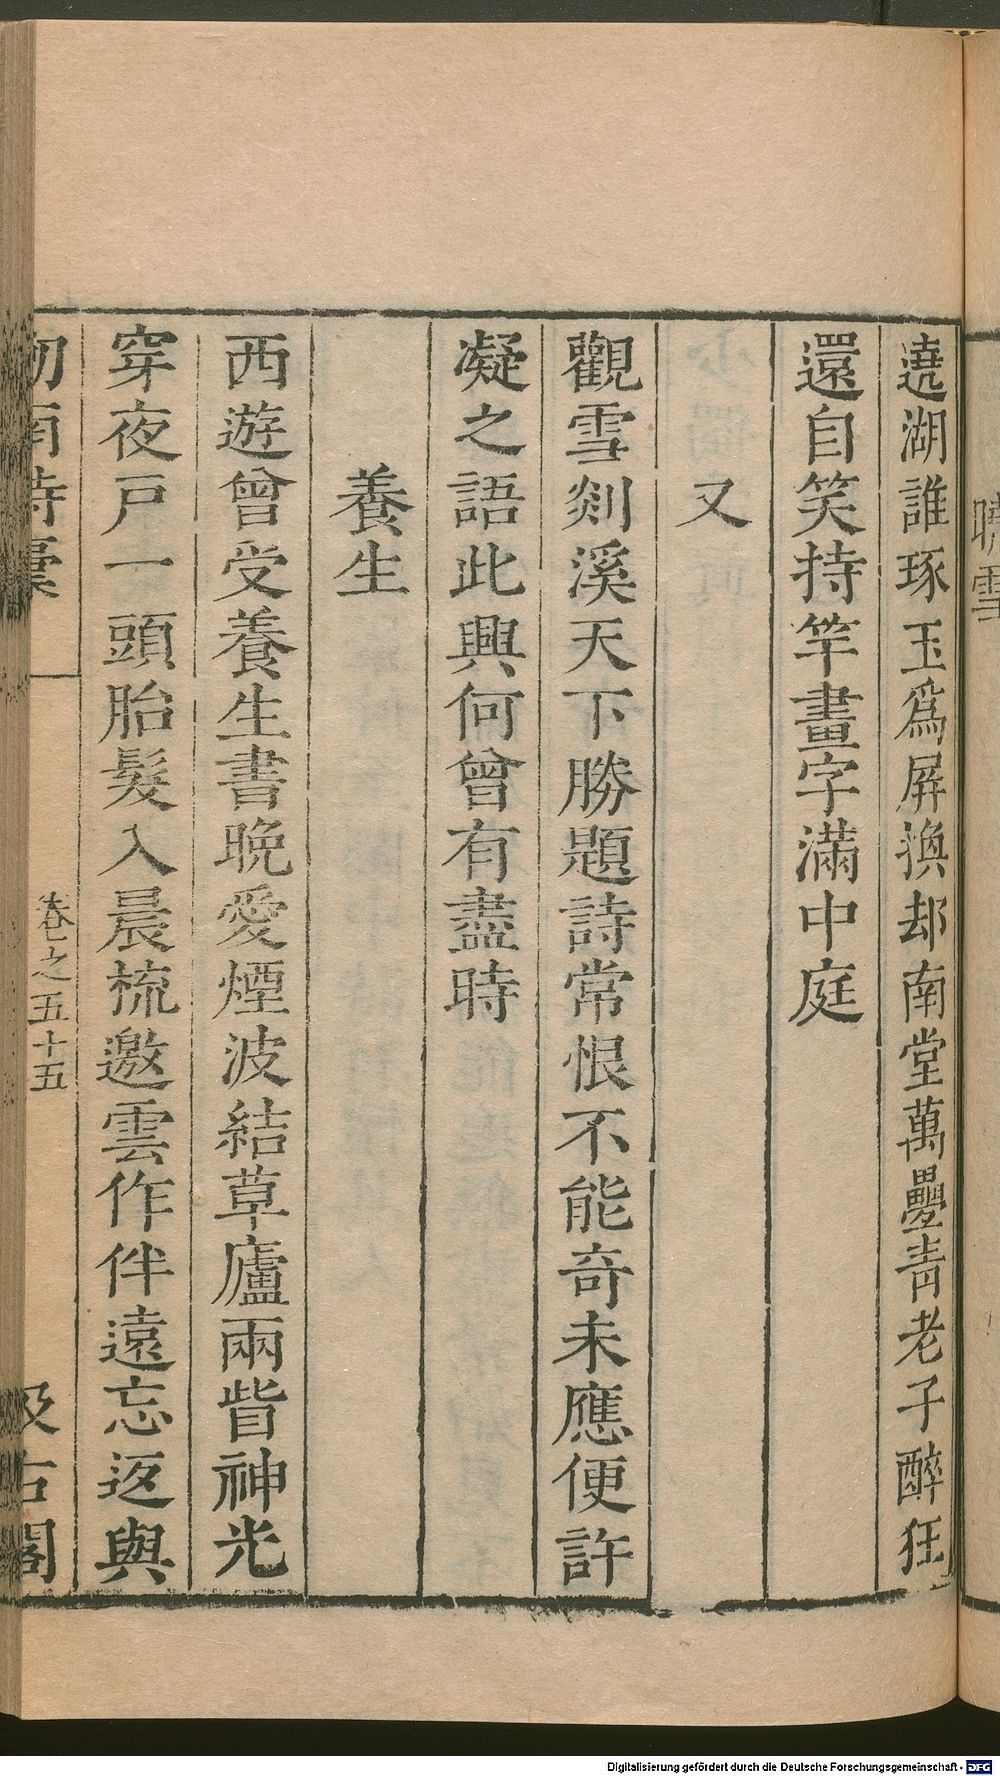 曉雪
遶湖誰琢玉爲屏換却南堂萬疊青老子醉狂
還自笑持竿畫字滿中庭
又
觀雪剡溪天下勝題詩常恨不能奇未應便許
凝之語此興何曾有盡時
養生
西遊曾受養生書晚愛煙波結草廬兩眥神光
穿夜戶一頭胎髮入晨梳邀雲作伴遠忘返與
劍南詩稾
卷之五十五
汲古閣
Digitalisierung gefördert durch die Deutsche Forschungsgemeinschaft - DFG